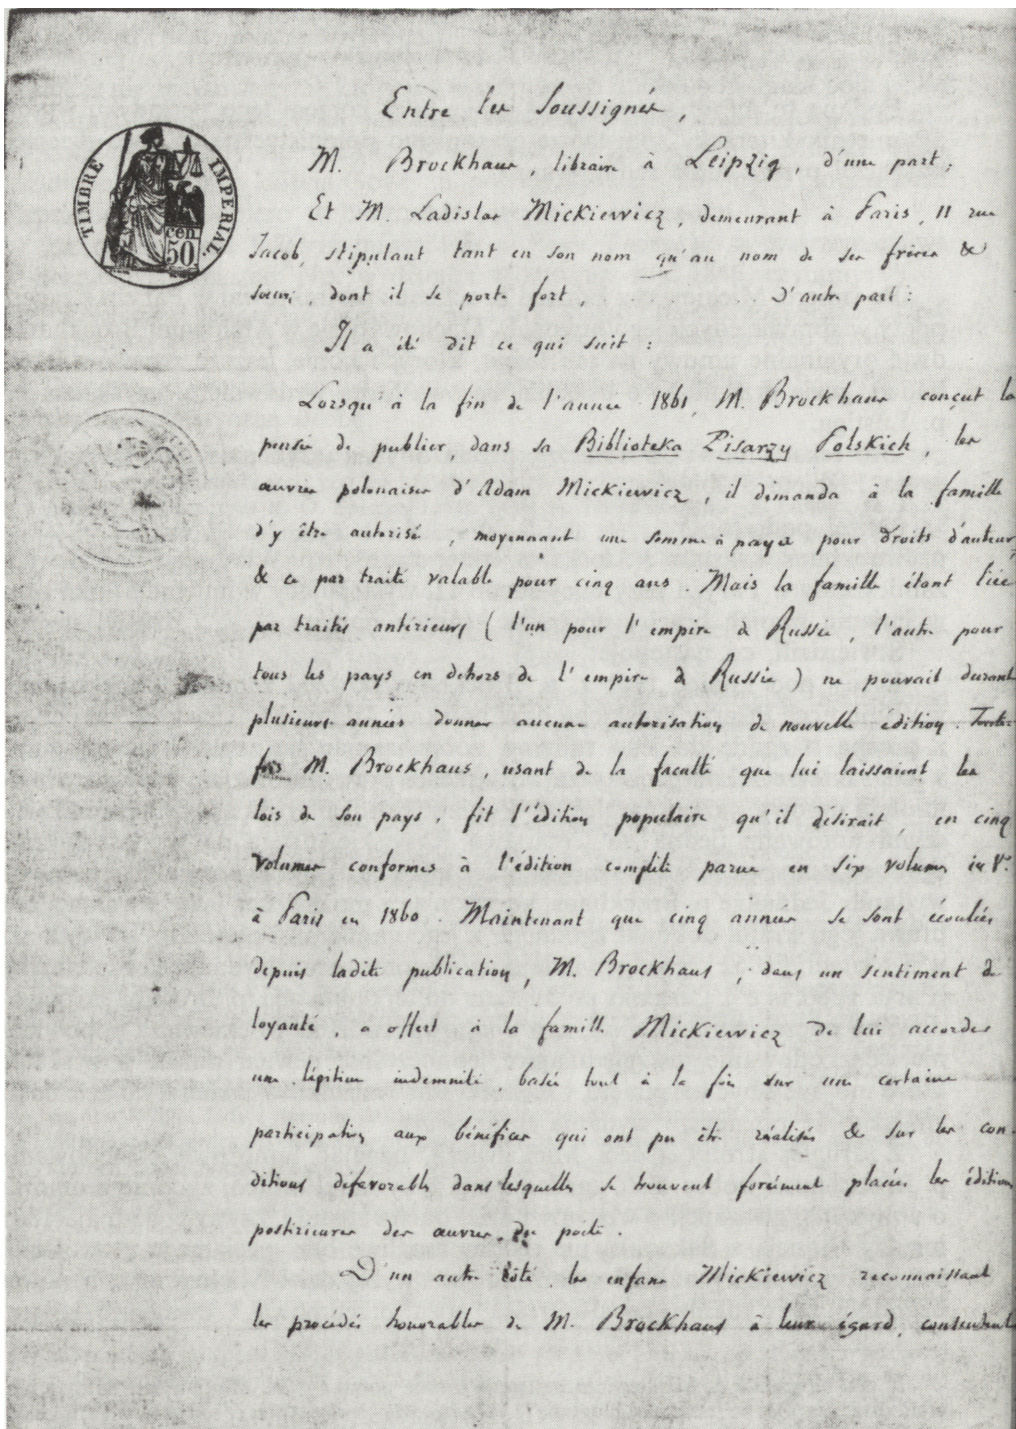 Entre les Soussignés,
TIMBRE IMPÉRIAL.
cen
50
M. Brockhaus, libraire à Leipzig, d'une part;
Et M. Ladislas Mickiewicz, demeurant à Paris, 11 rue
Jacob, stipulant tant en son nom qu'au nom de ses frères &
sœurs, dont il se porte fort, . . . . . . d'autre part :
Il a été dit ce qui suit :
Lorsqu'à la fin de l'année 1861, M. Brockhaus conçut la
pensée de publier, dans sa Biblioteka Pisarzy Polskich, les
œuvres polonaises d'Adam Mickiewicz, il demanda à la famille
d'y être autorisé, moyennant une somme à payer pour droits d'auteur,
& ce par traité valable pour cinq ans. Mais la famille étant liée
par traités antérieurs (l'un pour l'empire de Russie, l'autre pour
tous les pays en dehors de l'empire de Russie) ne pouvait durant
plusieurs années donner aucune autorisation de nouvelle édition. Toute-
fois M. Brockhaus, usant de la faculté que lui laissaient les
lois de son pays, fit l'édition populaire qu'il désirait, en cinq
volumes conformes à l'édition complète parue en six volumes in 8°.
à Paris en 1860. Maintenant que cinq années se sont écoulées
depuis ladite publication, M. Brockhaus, dans un sentiment de
loyauté, a offert à la famille Mickiewicz de lui accorder
une légitime indemnité, basée tout à la fois sur une certaine
participation aux bénéfices qui ont pu être réalisés & sur les con-
ditions défavorables dans lesquelles se trouvent forcément placées les éditions
postérieures des œuvres du poète.
D'un autre côté, les enfans Mickiewicz reconnaissant
les procédés honorables de M. Brockhaus à leur égard, consentent